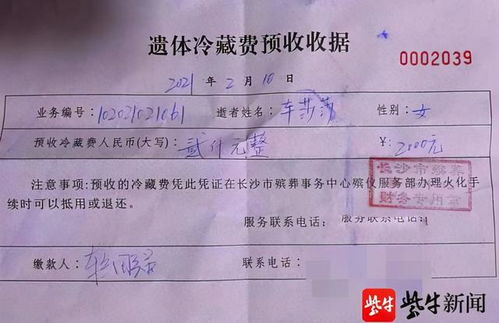 遗体冷藏费预收收据
0002039
2021年2月10日
业务编号:10202102 逝者姓名:车莎莎 性别:女
预收冷藏费人民币(大写):贰仟元整 ¥:2000元
注意事项:预收的冷藏费凭此凭证在长沙市殡葬事务中心殡仪服务部办理火化手
续时可以抵用或退还。
长沙市殡葬
财务专用章
服务联系电话: 服务联系电话:
缴款人: 联系电话:
紫牛 紫牛新闻